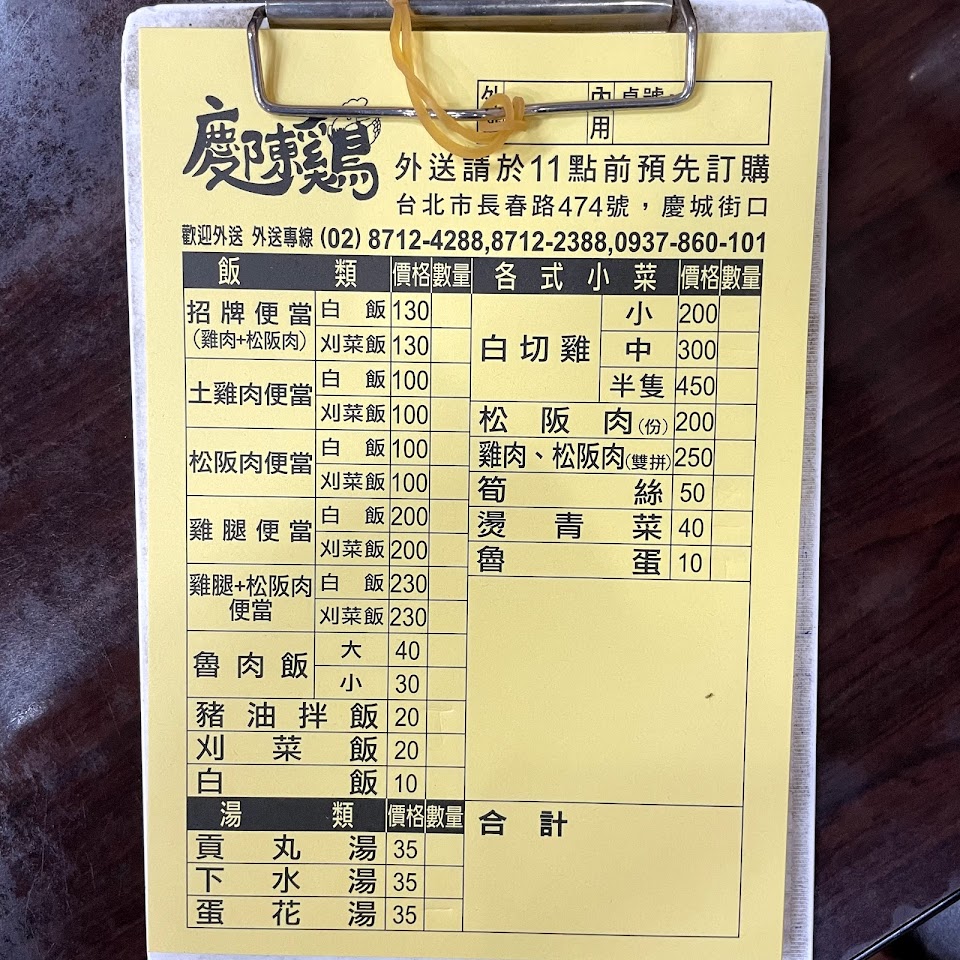 外
內用 桌號
慶陳鷄
外送請於11點前預先訂購
台北市長春路474號，慶城街口
歡迎外送 外送專線 (02) 8712-4288,8712-2388,0937-860-101
飯類 價格 數量
招牌便當 (雞肉+松阪肉) 白飯 130
刈菜飯 130
土雞肉便當 白飯 100
刈菜飯 100
松阪肉便當 白飯 100
刈菜飯 100
雞腿便當 白飯 200
刈菜飯 200
雞腿+松阪肉便當 白飯 230
刈菜飯 230
魯肉飯 大 40
小 30
豬油拌飯 20
刈菜飯 20
白飯 10
湯類 價格 數量
貢丸湯 35
下水湯 35
蛋花湯 35
各式小菜 價格 數量
白切雞 小 200
中 300
半隻 450
松阪肉(份) 200
雞肉、松阪肉(雙拼) 250
筍絲 50
燙青菜 40
魯蛋 10
合計